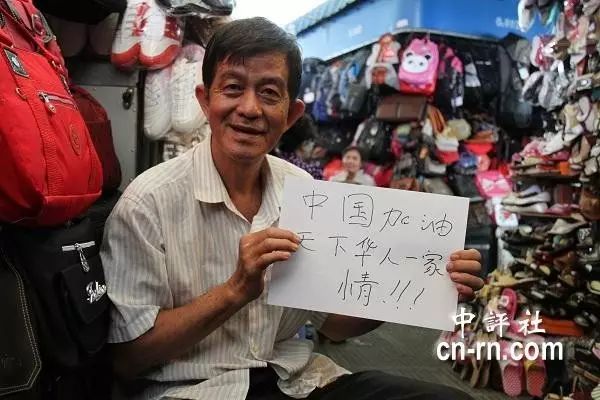 中国加油
天下华人一家
情!!!
中評社
cn-rn.com